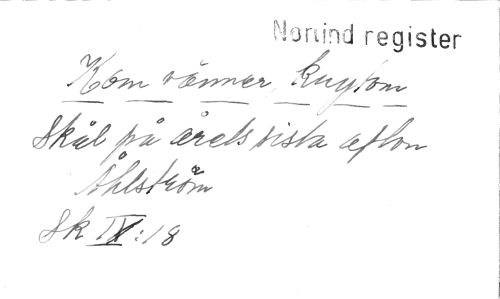 Norlind register
Kom vänner, knytom
Skål på årets sista afton
Åhlström
Sk IV:18